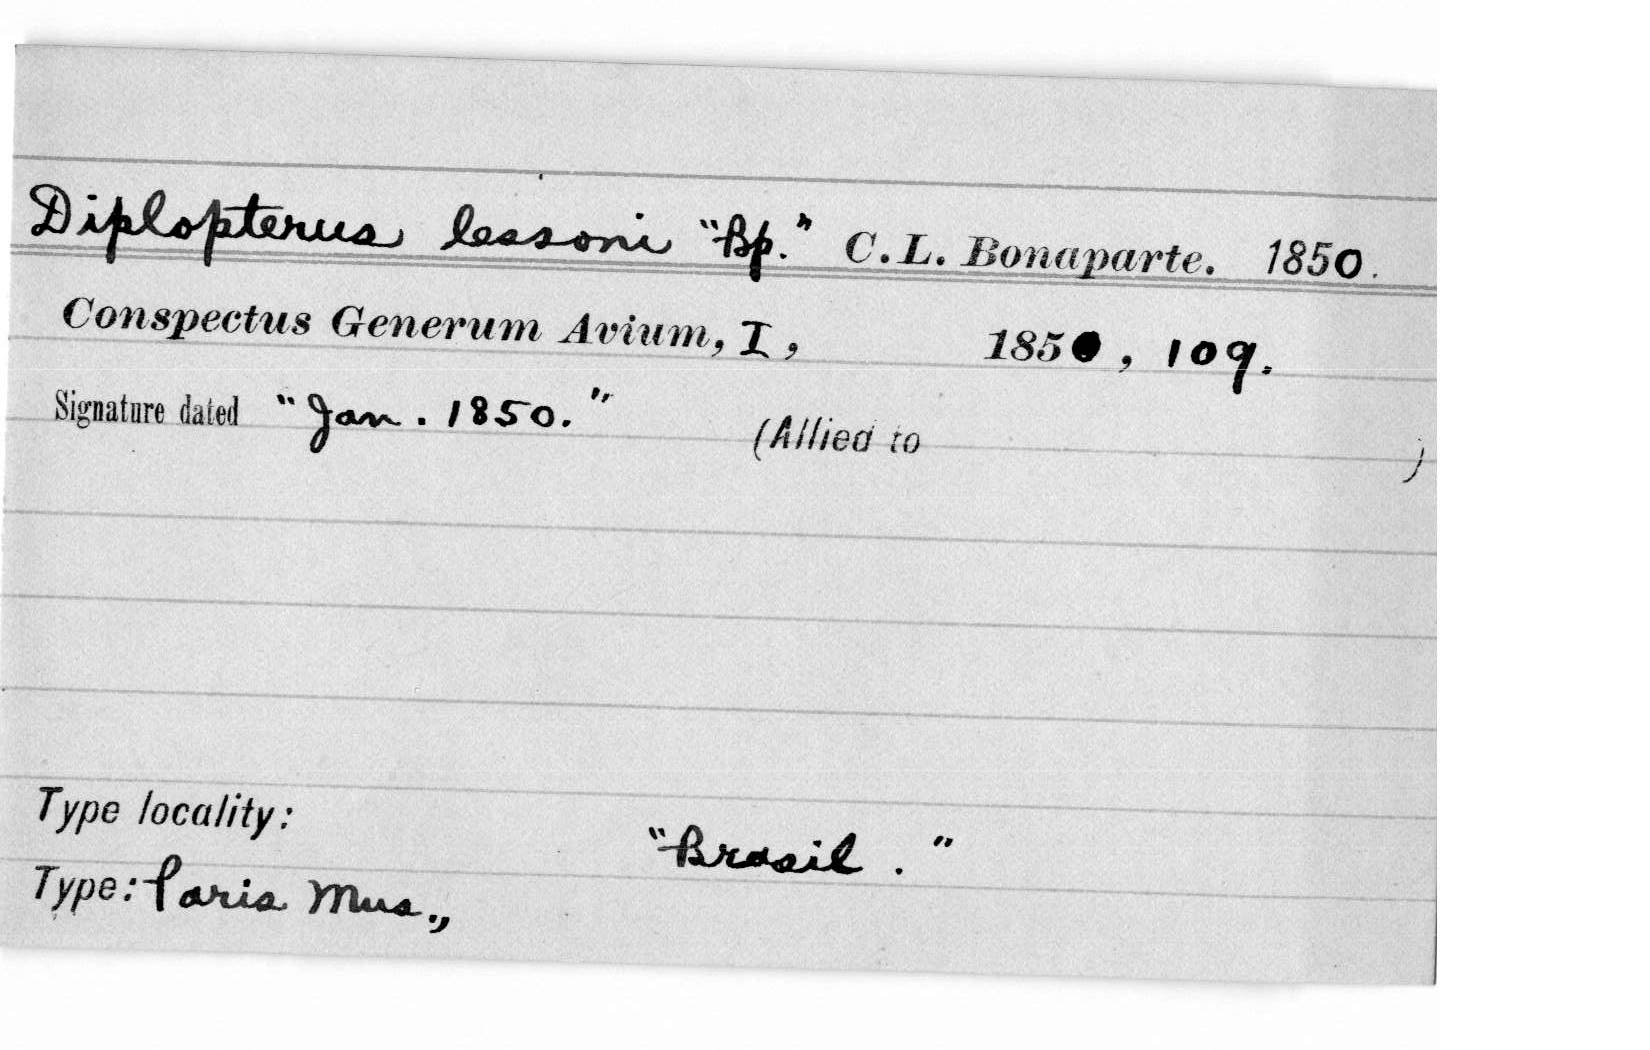 Diplopterus lessoni "Bp." C.L. Bonaparte. 1850.
Conspectus Generum Avium, I, 1850, 109.
Signature dated "Jan. 1850." (Allied to )
Type locality: "Brasil."
Type: Paris Mus.,